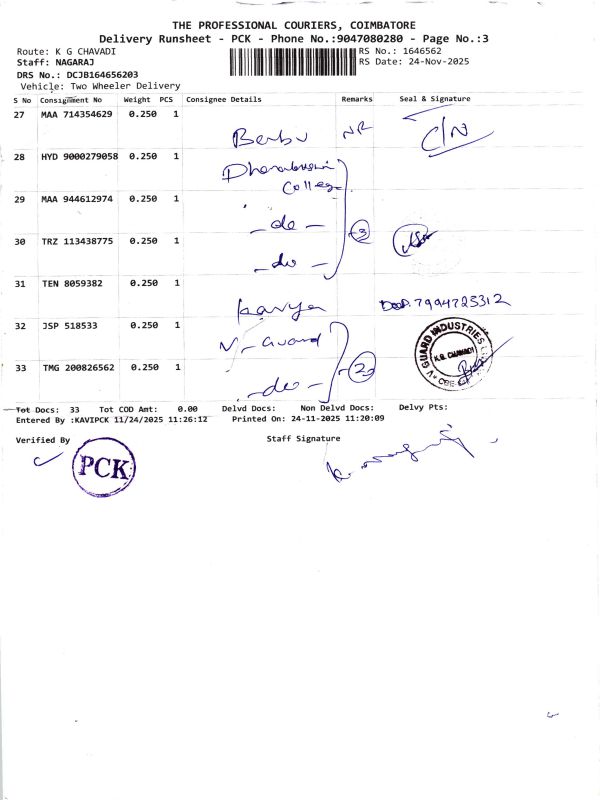 THE PROFESSIONAL COURIERS, COIMBATORE
Delivery Runsheet - PCK - Phone No.:9047080280 - Page No.:3
Route: K G CHAVADI
RS No.: 1646562
Staff: NAGARAJ
RS Date: 24-Nov-2025
DRS No.: DCJB164656203
Vehicle: Two Wheeler Delivery
S No Consignment No Weight PCS Consignee Details Remarks Seal & Signature
27 MAA 714354629 0.250 1
NR C/N
28 HYD 9000279058 0.250 1
College
29 MAA 944612974 0.250 1
- do - 3
30 TRZ 113438775 0.250 1
- do -
31 TEN 8059382 0.250 1
Kavya 7994725312
32 JSP 518533 0.250 1
V-Guard
V GUARD INDUSTRIES
K.G. CHAVADI
33 TMG 200826562 0.250 1
- do - 2
Tot Docs: 33 Tot COD Amt: 0.00 Delvd Docs: Non Delvd Docs: Delvy Pts:
Entered By :KAVIPCK 11/24/2025 11:26:12 Printed On: 24-11-2025 11:20:09
Verified By Staff Signature
PCK